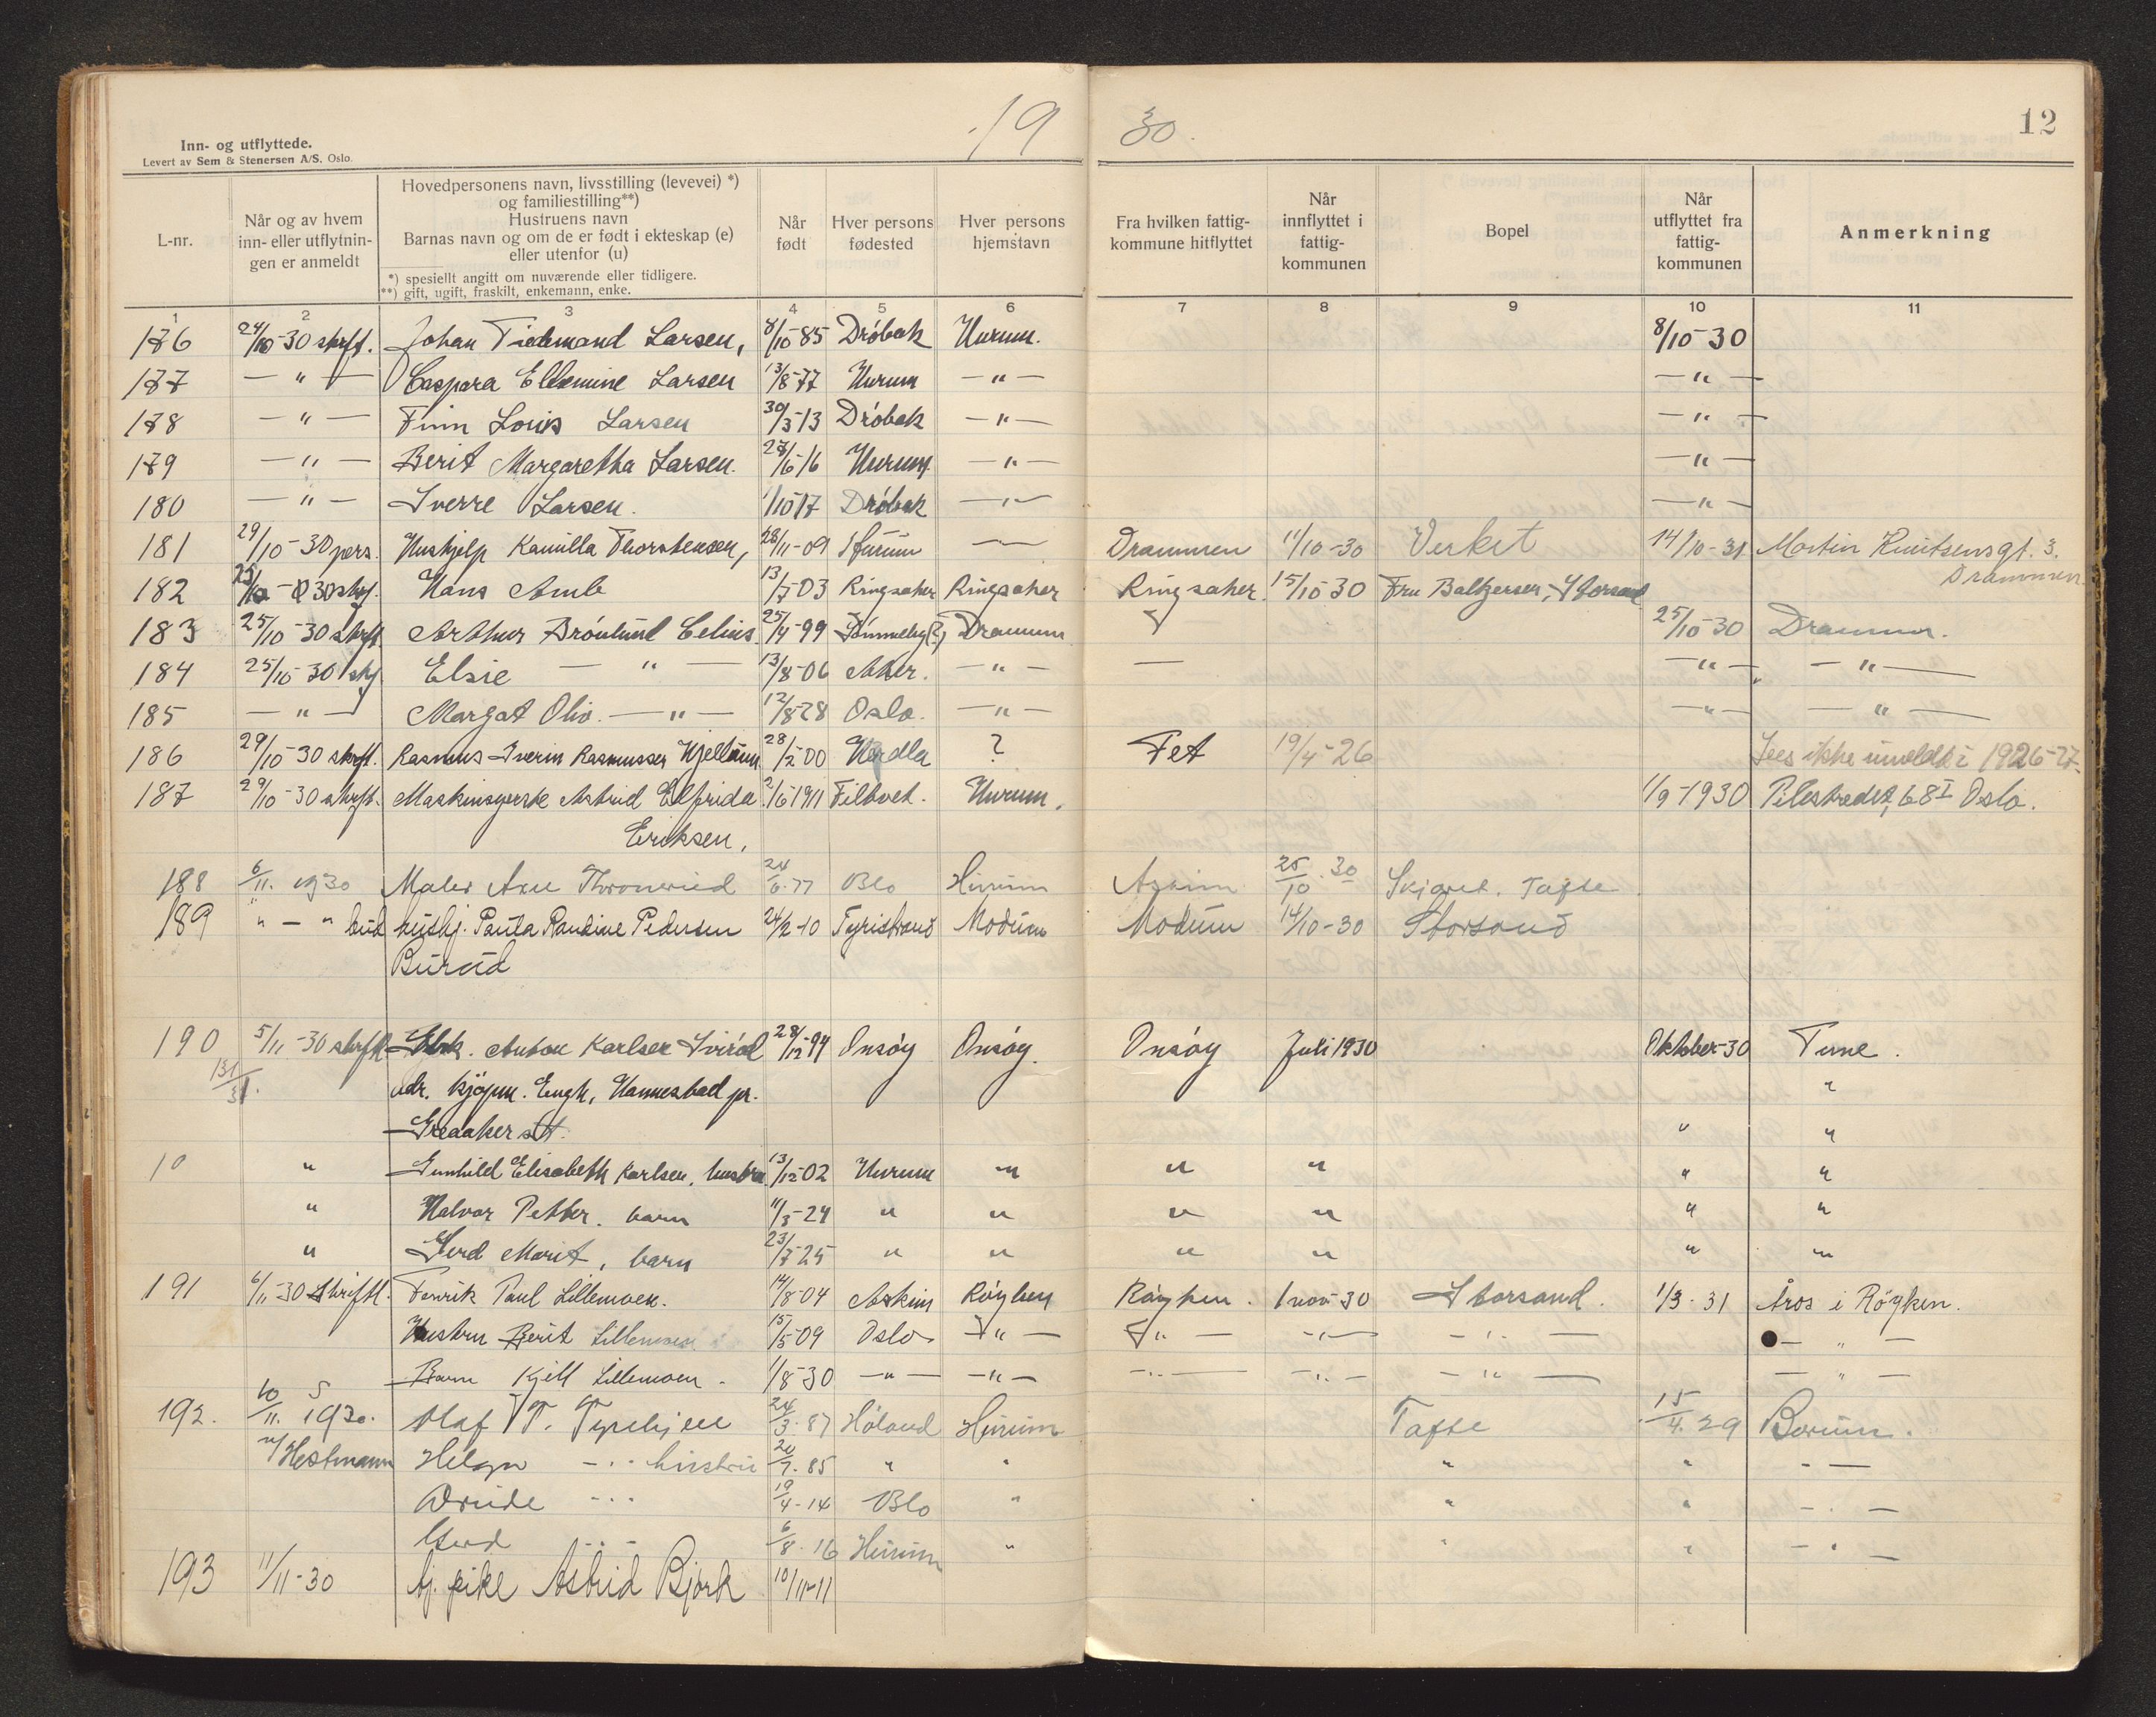 19 30.
12
Inn- og utflyttede.
Levert av Sem & Stenersen A/S. Oslo.
L-nr.
Når og av hvem inn- eller utflytnin- gen er anmeldt
Hovedpersonens navn, livsstilling (levevei) *)
og familiestilling**)
Hustruens navn
Barnas navn og om de er født i ekteskap (e)
eller utenfor (u)
*) spesiellt angitt om nuværende eller tidligere.
**) gift, ugift, fraskilt, enkemann, enke.
Når født
Hver persons fødested
Hver persons hjemstavn
Fra hvilken fattig- kommune hitflyttet
Når innflyttet i fattig- kommunen
Bopel
Når utflyttet fra fattig- kommunen
Anmerkning
1 2 3 4 5 6 7 8 9 10 11
176 24/10-30 skrft. Johan Tidemand Larsen, 8/10-85 Drøbak Hurum. 8/10-30
177 — " — Caspara Ellemine Larsen 13/8-77 Hurum — " — — " —
178 — " — Finn Louis Larsen 30/3-13 Drøbak — " — — " —
179 — " — Berit Margaretha Larsen. 27/6-16 Hurum — " — — " —
180 — " — Sverre Larsen. 1/10-17 Drøbak — " — — " —
181 29/10-30 pers. Hushjelp Kamilla Thorstensen, 28/11-09 Hurum — Drammen 11/10-30 Verket 14/10-31 Martin Knutsensgt. 3.
Drammen
182 25/10-30 skrf. Hans Amb 13/7-03 Ringsaker Ringsaker Ringsaker. 15/10-30 Fru Baltzersen, Storsand
183 25/10-30 skrft. Arthur Brönlund Celius 25/4-99 Drammen 25/10-30 Drammen.
184 25/10-30 skrf Elsie — " — 13/8-06 Aker. — " — — — " — — " —
185 — " — Margat Oliv. — " — 12/8-28 Oslo. — " — — " — — " —
186 29/10-30 skrft. Rasmus Sverin Rasmussen 28/2-00 Herdla ? Fet 19/4-26 Sees ikke innmeldt i 1926-27.
187 29/10-30 skrft. Maskinsyerske Astrid Elfrida 2/6-1911 Filtvet. Hurum. 1/9-1930 Pilestredet, 68 I Oslo.
Eriksen,
188 6/11. 1930 Maler Axel 24/6.77 Oslo Hurum 25/10.30 Tofte
189 " — " bud hushj. Paula Randine Pedersen 24/2-10 Tyristrand Modum Modum 14/10-30 Storsand
Burud
190 5/11-30 skrftl Anton Karlsen 28/12-94 Onsøy Onsøy. Onsøy Juli 1930 Oktober-30 Tune.
131/31. adr. kjøpm. Engh, Hannestad pr. "
Greaaker st. " "
10 " Gunhild Elisabeth Karlsen, hustru 13/12-02 Hurum " " " " "
" Halvor Petter. barn 11/3-24 " " " " " "
" Gerd Marit, barn 23/7-25 " " " " " "
191 6/11-30 skriftl. Fenrik Paul Lillemoen. 14/8-04 Askim Røyken Røyken. 1 nov-30 Storsand. 1/3-31 Åros i Røyken.
Hustru Berit Lillemoen 15/5-09 Oslo — " — — " — — " — — " — — " —
Barn Kjell Lillemoen. 1/8-30 — " — — " — — " — — " — — " — — " —
192. 10/11. 1930. Olaf T. 24/3.87 Høland Hurum Tofte 15/4.29 Bærum.
v/Hestmann Helga — " hustru 20/7.85 " " " " — " —
— " 19/4-14 Oslo " " " — " —
Gerd — " — 6/8.16 Hurum " " " — " —
193 11/11-30 Tj. pike Astrid Bjørk 10/11-11